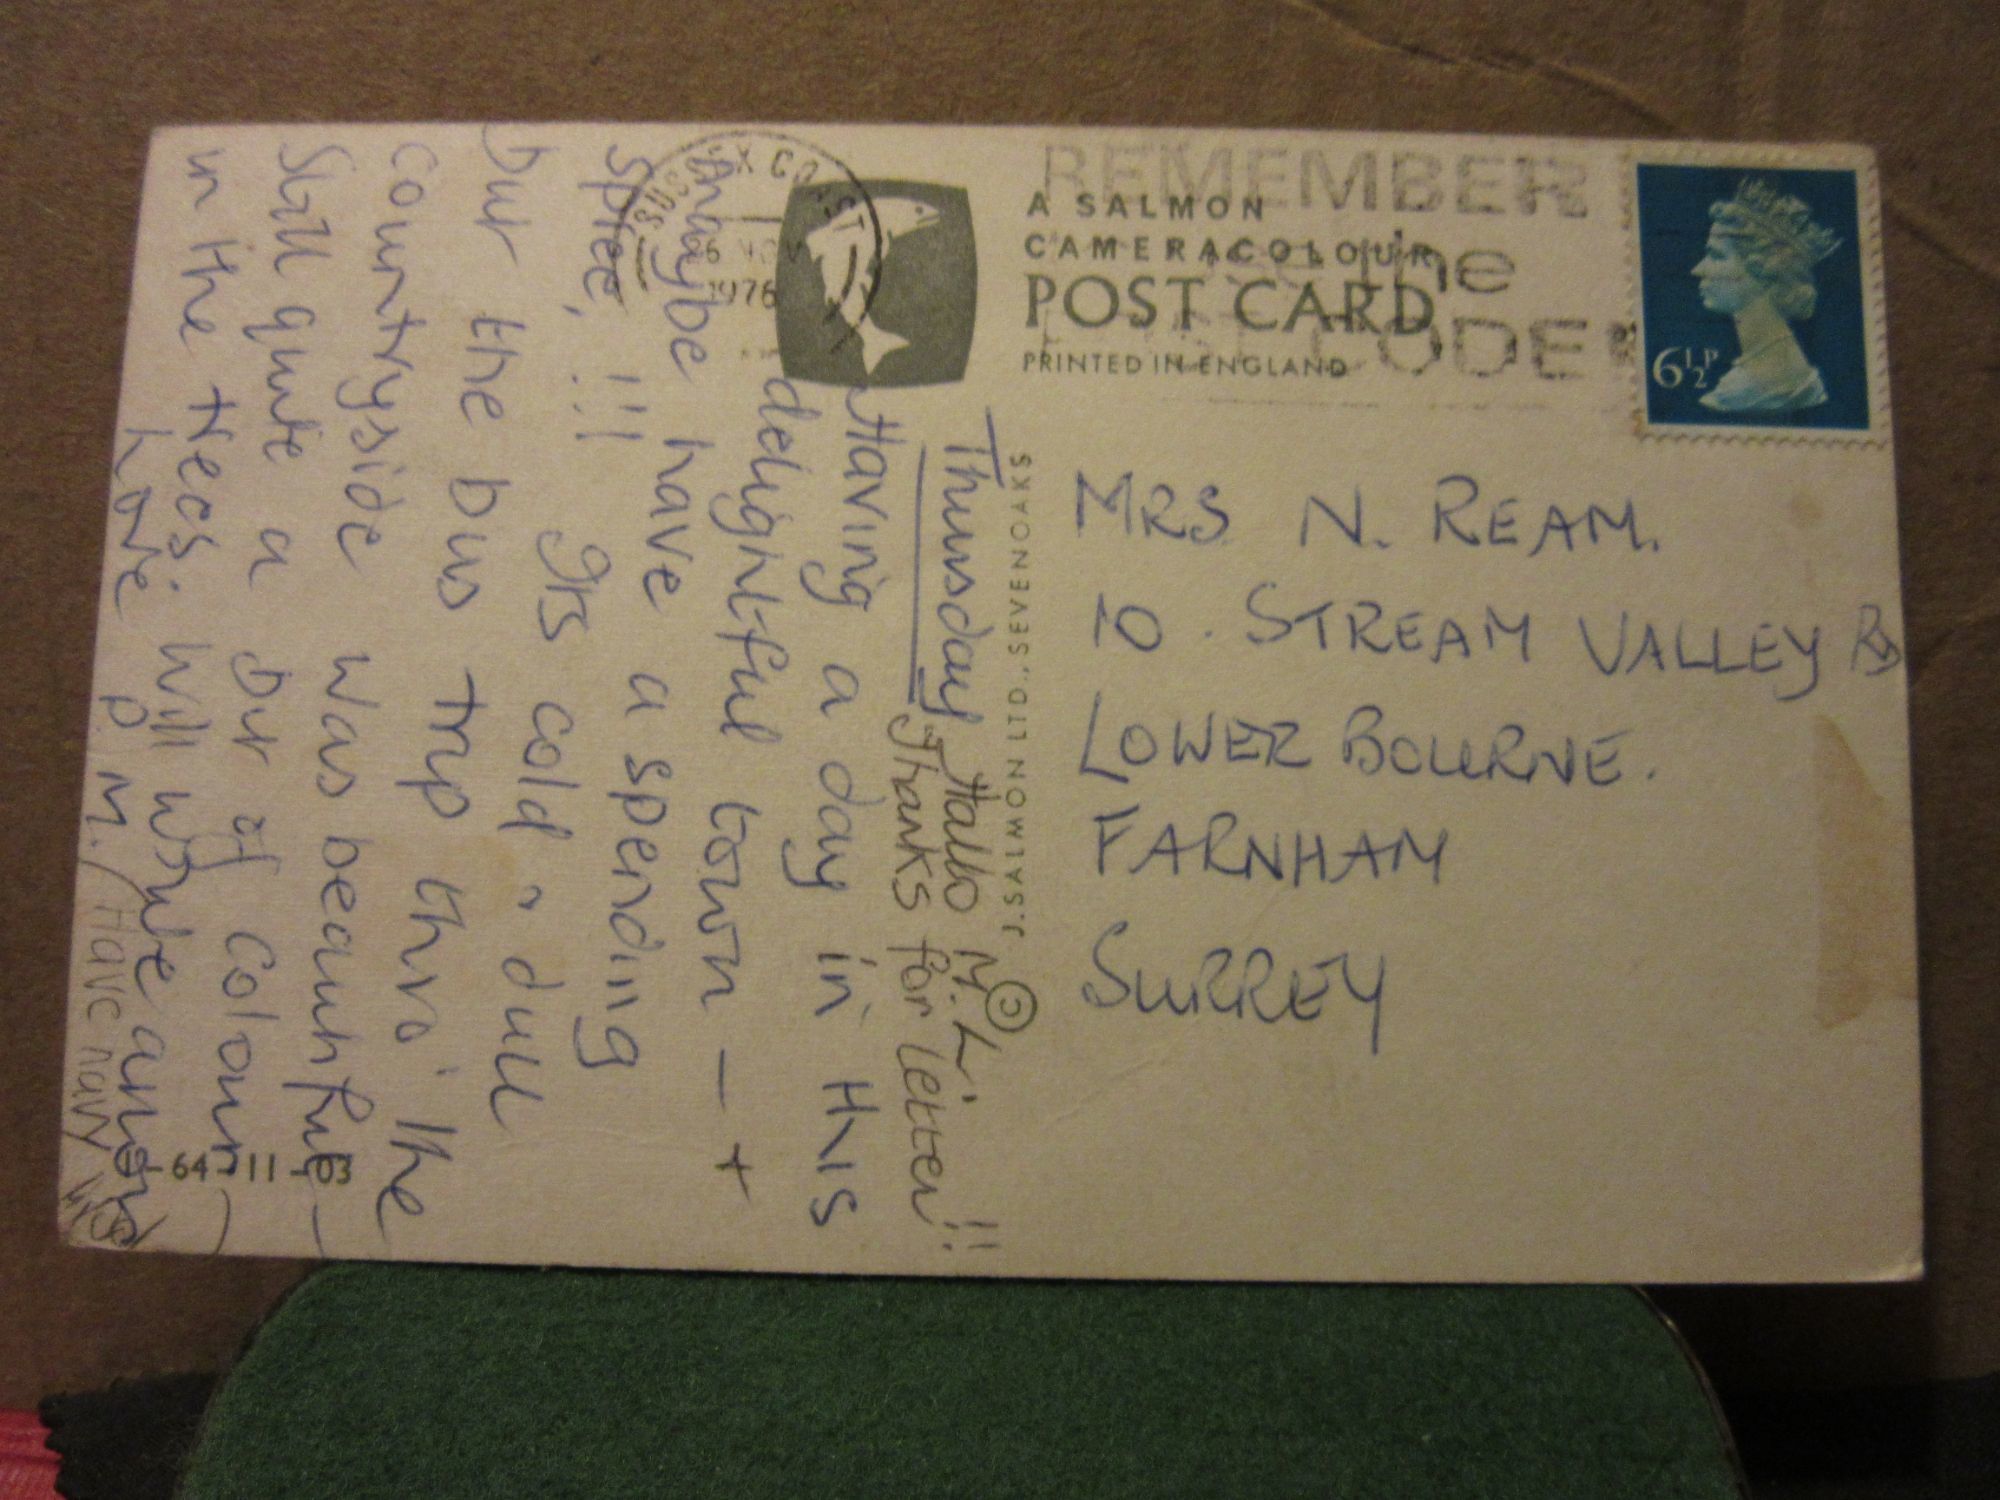 REMEMBER
the
POST CODE
SUSSEX COAST
NOV
1976
6½P
A SALMON
CAMERACOLOUR
POST CARD
PRINTED IN ENGLAND
J. SALMON LTD., SEVENOAKS ©
MRS N. REAM.
10. STREAM VALLEY Rd
LOWER BOURNE.
FARNHAM
SURREY
Thursday Hallo M.L.!!
Thanks for letter
Having a day in this
delightful town — +
maybe have a spending
spree, !!! Its cold & dull
but the bus trip thro' the
countryside was beautiful —
still quite a bit of colour
in the trees. Will write anon
Love P. M.
Have navy
1-64-11-03